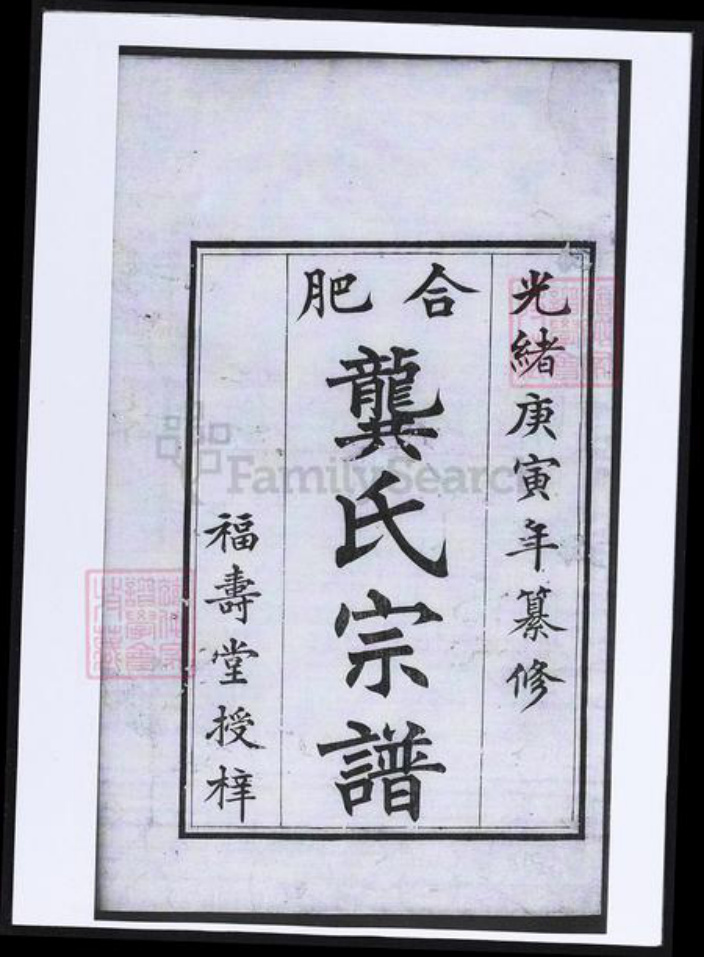 光緒庚寅年纂修
合肥
龔氏宗譜
福壽堂授梓
FamilySearch